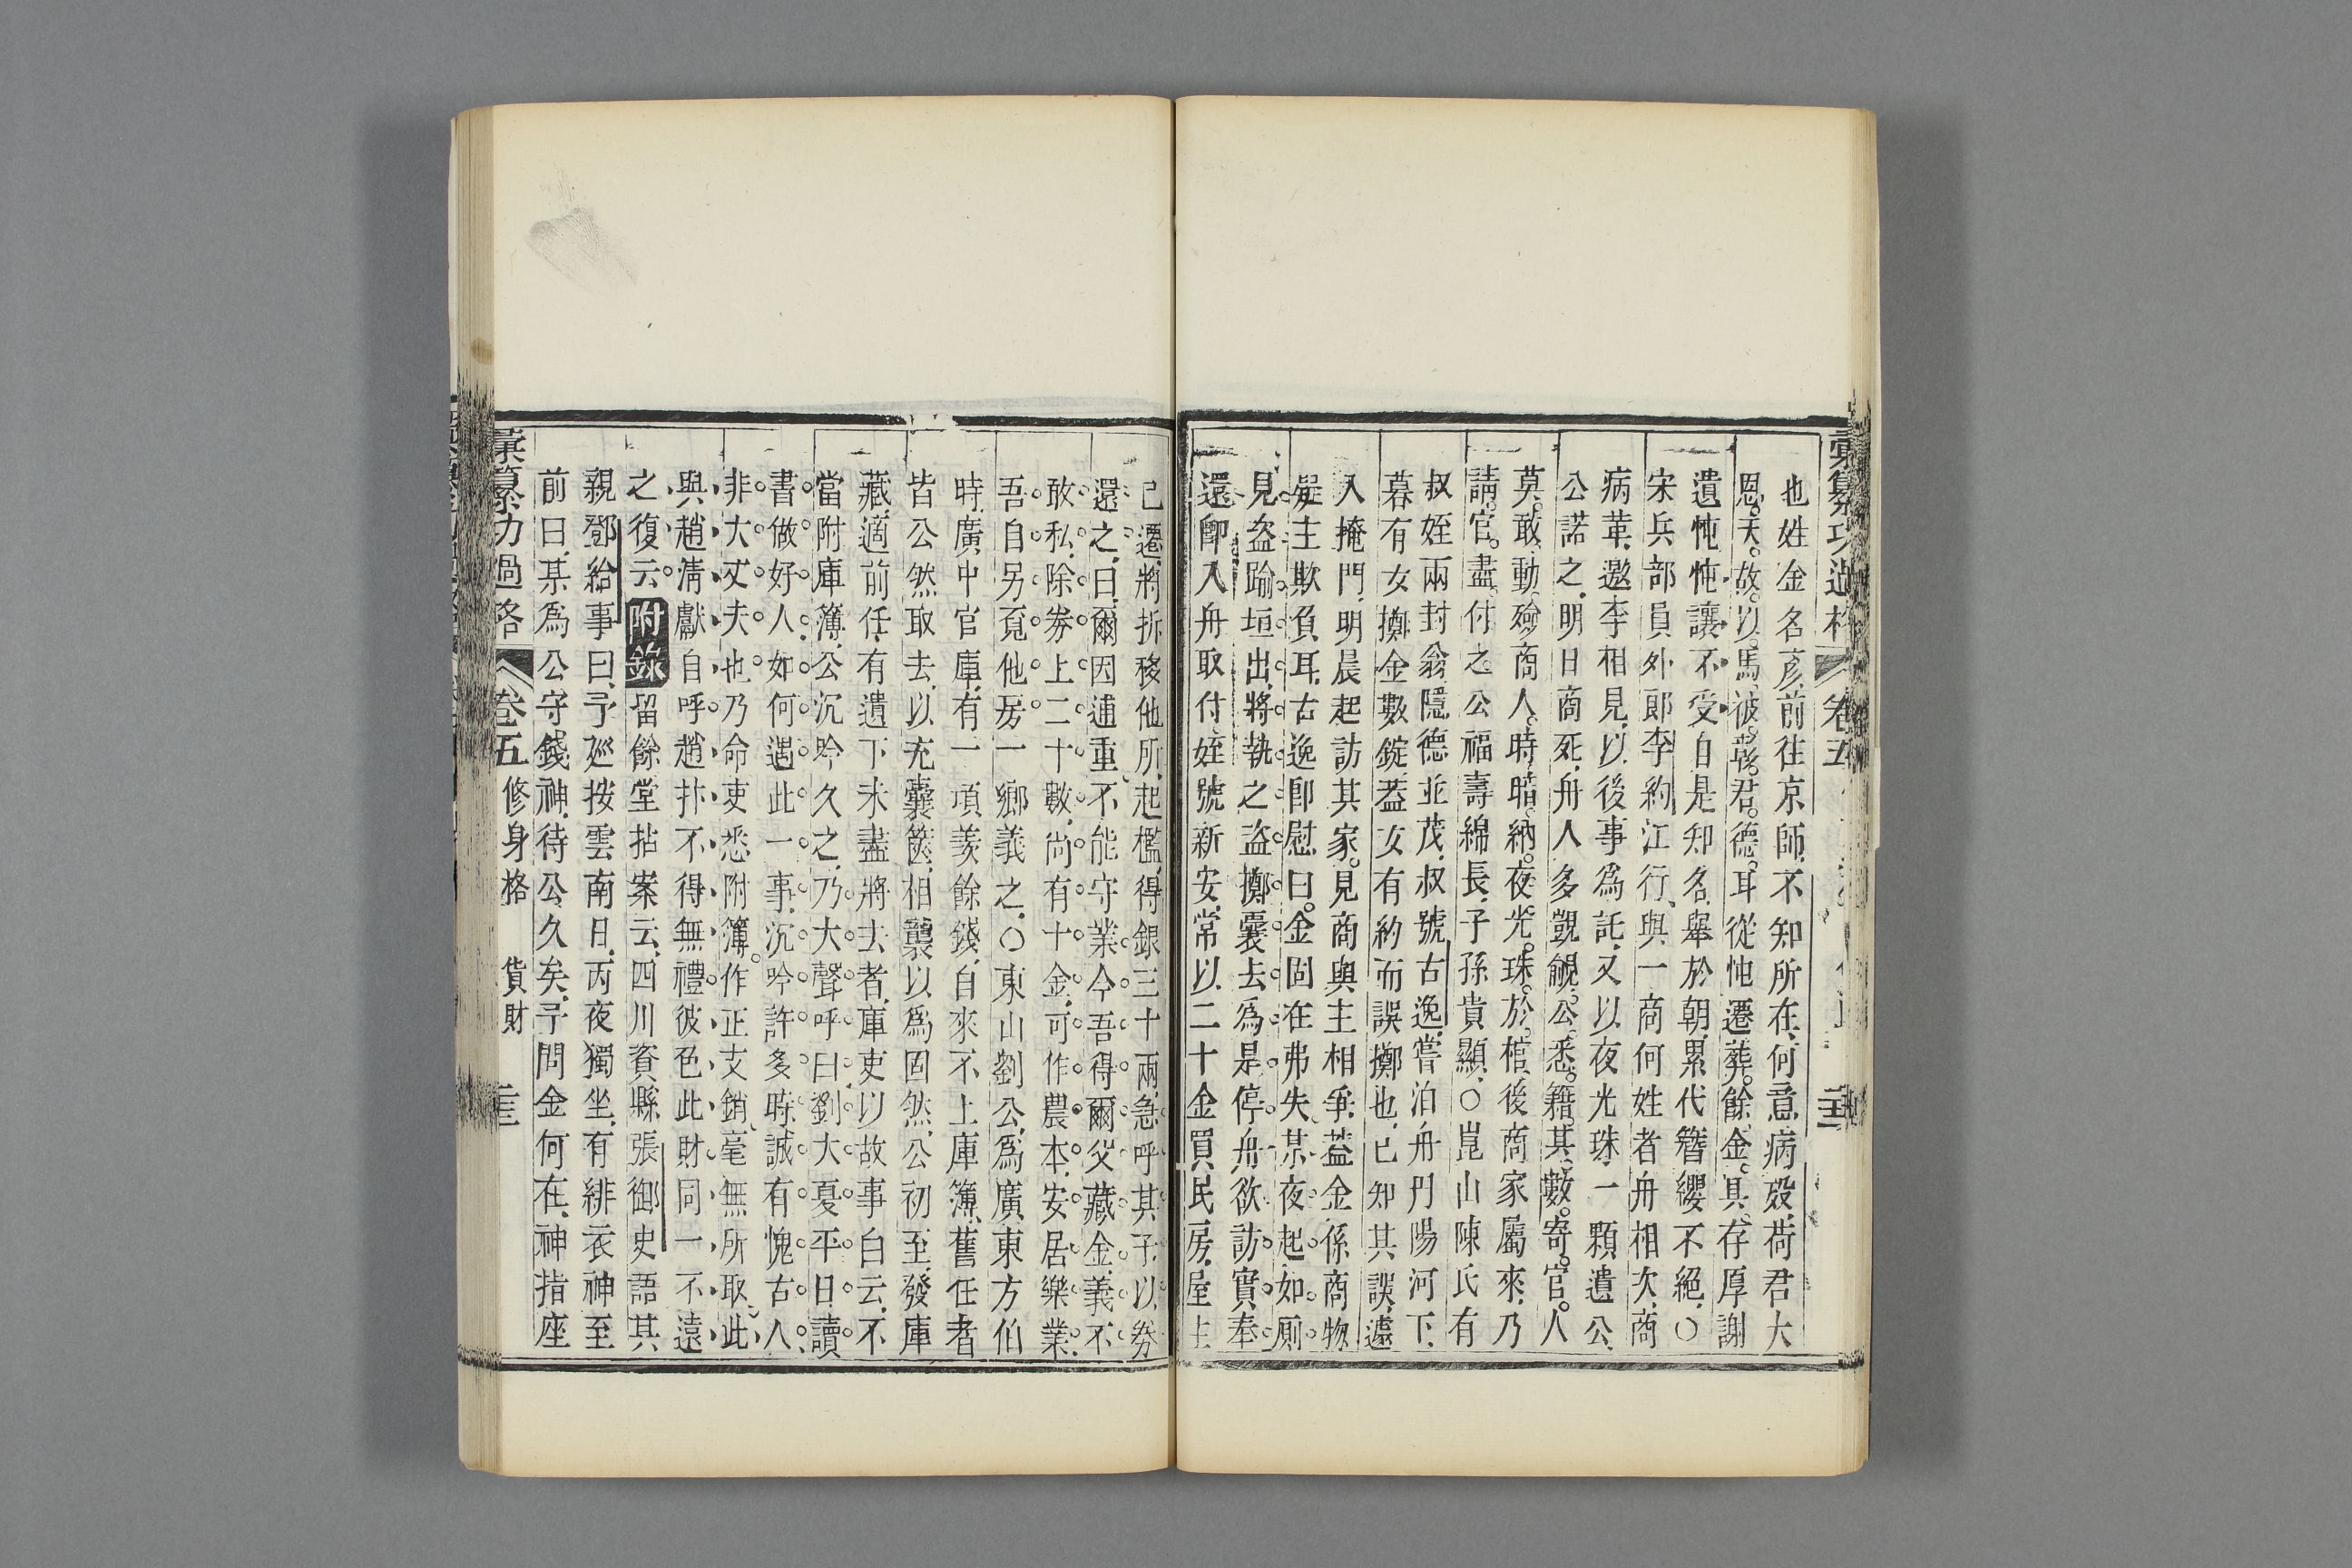 彙纂功過格 卷五
也姓金名彥前往京師不知所在何意病歿荷君大
恩天故以馬被彰君德耳從忳遷葬餘金具存厚謝
遺忳忳讓不受自是知名舉於朝累代簪纓不絕○
宋兵部員外郎李約江行與一商何姓者舟相次商
病革邀李相見以後事爲託又以夜光珠一顆遺公
公諾之明日商死舟人多覬覦公悉籍其數寄官人
莫敢動殮商人時暗納夜光珠於棺後商家屬來乃
請官盡付之公福壽綿長子孫貴顯○崑山陳氏有
叔姪兩封翁隱德並茂叔號古逸嘗泊舟門陽河下
暮有女擲金數錠葢女有約而誤擲也已知其誤遽
入掩門明晨起訪其家見商與主相爭葢金係商物
疑主欺負耳古逸卽慰曰金固在弗失某夜起如厠
見盜踰垣出將執之盜擲囊去爲是停舟欲訪實奉
還卽入舟取付姪號新安常以二十金買民房屋主
已遷將拆移他所起檻得銀三十兩急呼其子以劵
還之曰爾因逋重不能守業今吾得爾父藏金義不
敢私除劵上二十數尚有十金可作農本安居樂業
吾自另覓他房一鄉義之○東山劉公爲廣東方伯
時廣中官庫有一項羨餘錢自來不上庫簿舊任者
皆公然取去以充囊篋相襲以爲固然公初至發庫
藏適前任有遺下未盡將去者庫吏以故事白云不
當附庫簿公沉吟久之乃大聲呼曰劉大夏平日讀
書做好人如何遇此一事沉吟許多時誠有愧古人
非大丈夫也乃命吏悉附簿作正支銷毫無所取此
與趙淸獻自呼趙抃不得無禮彼色此財同一不遠
之復云 附錄 留餘堂拈案云四川資縣張御史語其
親鄧給事曰予廵按雲南日丙夜獨坐有緋衣神至
前曰某爲公守錢神待公久矣予問金何在神指座
彙纂功過格 卷五 修身格 貨財